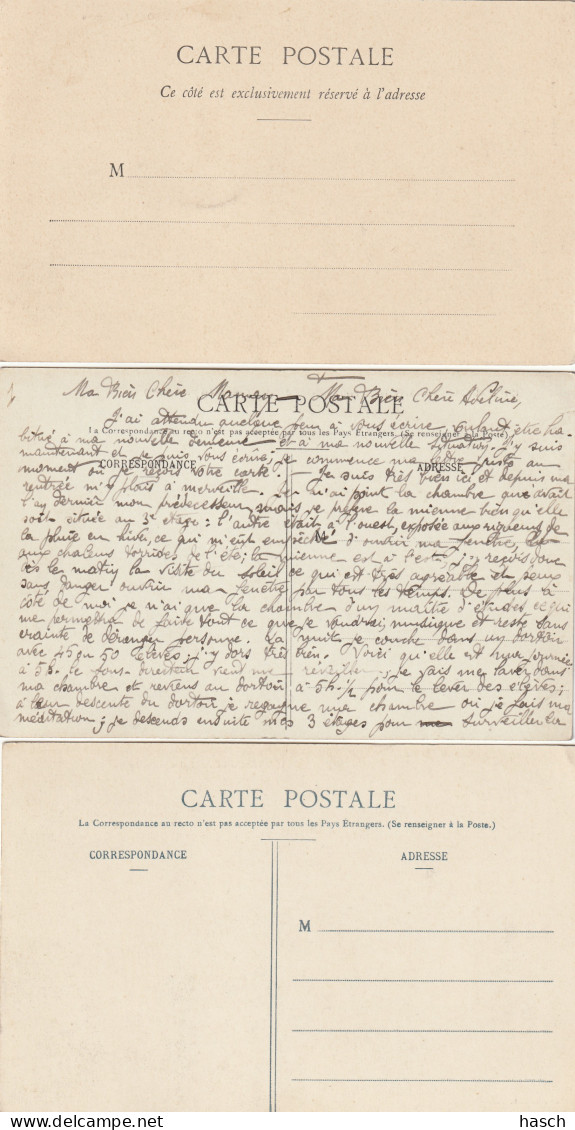 CARTE POSTALE
Ce côté est exclusivement réservé à l'adresse
M
Ma Bien Chère Maman — Ma Bien Chère
CARTE POSTALE
J'ai attendu quelque peu à vous écrire voulant être ha-
La Correspondance au recto n'est pas acceptée par tous les Pays Etrangers. (Se renseigner à la Poste)
bitué à ma nouvelle demeure et à ma nouvelle situation, j'y suis
maintenant et je puis vous écrire; je commence ma lettre juste au
CORRESPONDANCE
ADRESSE
moment où je reçois votre carte. Je suis très bien ici et depuis ma
rentrée m'y plais à merveille. Je n'ai point la chambre que avait
l'an dernier mon prédécesseur mais je préfère la mienne bien qu'elle
soit située au 3e étage: l'autre était à l'ouest, exposée aux rigueurs de
la pluie en hiver, ce qui m'eut empêché d'ouvrir ma fenêtre,
aux chaleurs torrides de l'été; la mienne est à l'est, j'y reçois donc
dès le matin la visite du soleil ce qui est très agréable et peux
sans danger ouvrir ma fenêtre par tous les temps. De plus à
côté de moi je n'ai que la chambre d'un maître d'études, ce qui
me permettra de faire tout ce que je voudrai, musique et reste sans
crainte de déranger personne. La nuit je couche dans un dortoir
avec 45 ou 50 élèves; j'y dors très bien. Voici qu'elle est ma journée
à 5h. le sous-directeur vient me réveiller. Je vais me laver dans
ma chambre et reviens au dortoir à 5h ½ pour le lever des élèves;
à leur descente du dortoir je regagne ma chambre où je fais ma
méditation; je descends ensuite mes 3 étages pour surveiller la
CARTE POSTALE
La Correspondance au recto n'est pas acceptée par tous les Pays Etrangers. (Se renseigner à la Poste.)
CORRESPONDANCE
ADRESSE
M
delcampe.net
hasch